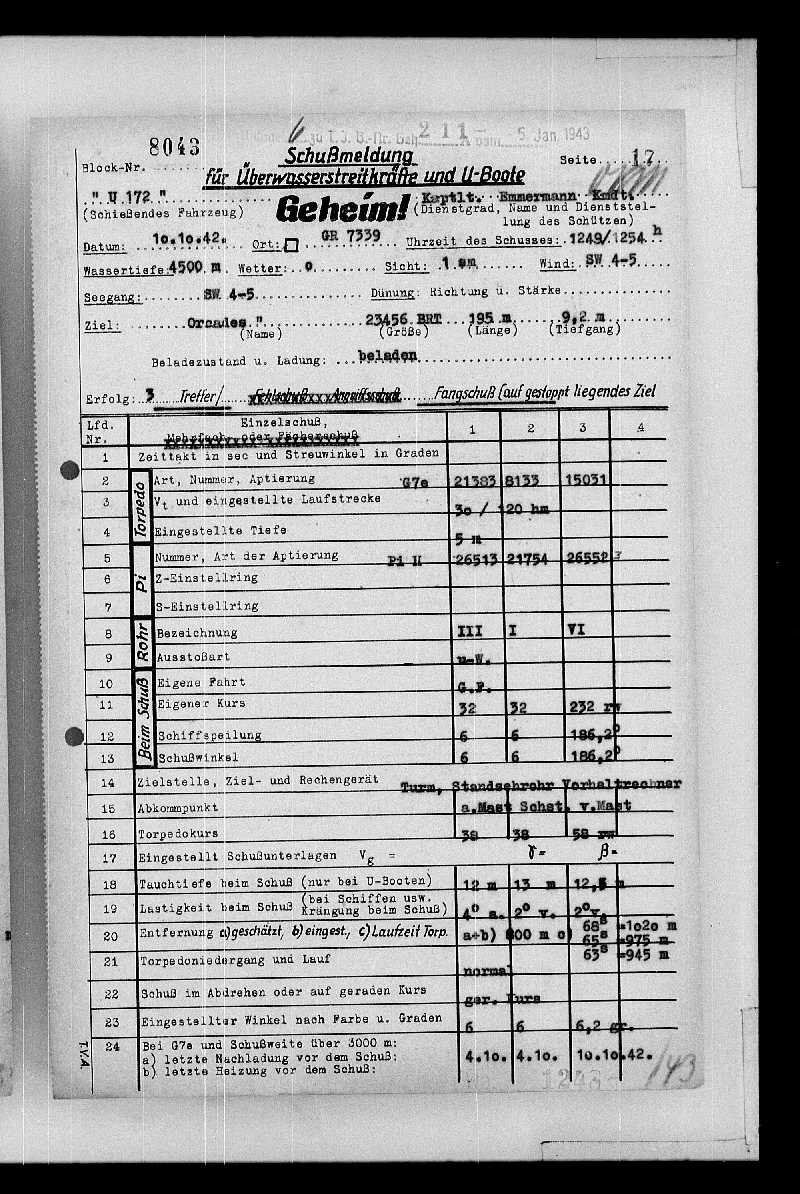 8043
211-
5. Jan. 1943
Block-Nr.
Schußmeldung
für Überwasserstreitkräfte und U-Boote
Seite.....17
"U 172"
(Schießendes Fahrzeug)
Geheim!
Kaptlt. Emmermann Kmdt.
(Dienstgrad, Name und Dienststel-
lung des Schützen)
Datum: 1o.1o.42. Ort: GR 7339 Uhrzeit des Schusses: 1249/1254 h
Wassertiefe: 4500 m Wetter: o Sicht: 1 sm Wind: SW 4-5
Seegang: SW 4-5 Dünung: Richtung u. Stärke
Ziel: Orcades" 23456 BRT 195 m 9,2 m
(Name) (Größe) (Länge) (Tiefgang)
Beladezustand u. Ladung: beladen
Erfolg: 3 Treffer/ Fehlschuß Fangschuß (auf gestoppt liegendes Ziel
Lfd. Nr. Einzelschuß, 1 2 3 4
Mehrfach- oder Fächerschuß
1 Zeittakt in sec und Streuwinkel in Graden
Torpedo
2 Art, Nummer, Aptierung G7e 21383 8133 15031
3 Vt und eingestellte Laufstrecke 3o / 120 hm
4 Eingestellte Tiefe 5 m
Pi
5 Nummer, Art der Aptierung Pi II 26513 21754 26552
6 Z-Einstellring
7 S-Einstellring
Rohr
8 Bezeichnung III I VI
9 Ausstoßart u-W.
Beim Schuß
10 Eigene Fahrt G.F.
11 Eigener Kurs 32 32 232 rw
12 Schiffspeilung 6 6 186,2°
13 Schußwinkel 6 6 186,2°
14 Zielstelle, Ziel- und Rechengerät Turm, Standsehrohr Vorhaltrechner
15 Abkommpunkt a.Mast Schst. v.Mast
16 Torpedokurs 38 38 58 rw
17 Eingestellt Schußunterlagen Vg = γ= β=
18 Tauchtiefe beim Schuß (nur bei U-Booten) 12 m 13 m 12,5 m
19 Lastigkeit beim Schuß (bei Schiffen usw. Krängung beim Schuß) 4° a. 2° v. 2°v.
20 Entfernung a)geschätzt, b) eingest., c) Laufzeit Torp. a+b) 800 m c) 68s =1o2o m
65s =975 m
21 Torpedoniedergang und Lauf normal 63s =945 m
22 Schuß im Abdrehen oder auf geraden Kurs ger. Kurs
23 Eingestellter Winkel nach Farbe u. Graden 6 6 6,2 gr.
24 Bei G7e und Schußweite über 3000 m:
a) letzte Nachladung vor dem Schuß: 4.1o. 4.1o. 1o.1o.42.
b) letzte Heizung vor dem Schuß:
T.V.A.
1243
/143